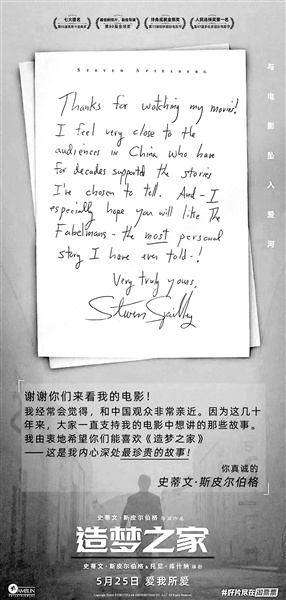 七大提名
最佳剧情片、最佳导演
终身成就金熊奖
人民选择奖第一名
STEVEN SPIELBERG
Thanks for watching my movies!
I feel very close to the
audiences in China who have
for decades supported the stories
I've chosen to tell. And - I
especially hope you will like The
Fabelmans - the most personal
story I have ever told -!
Very truly yours,
Steven Spielberg
与电影坠入爱河
谢谢你们来看我的电影!
我经常会觉得,和中国观众非常亲近。因为这几十
年来,大家一直支持我的电影中想讲的那些故事。
我由衷地希望你们能喜欢《造梦之家》
——这是我内心深处最珍贵的故事!
你真诚的
史蒂文·斯皮尔伯格
史蒂文·斯皮尔伯格
造梦之家
史蒂文·斯皮尔伯格 & 托尼·库什纳 编剧
5月25日 爱我所爱
AMBLIN
#好片尽在国票票